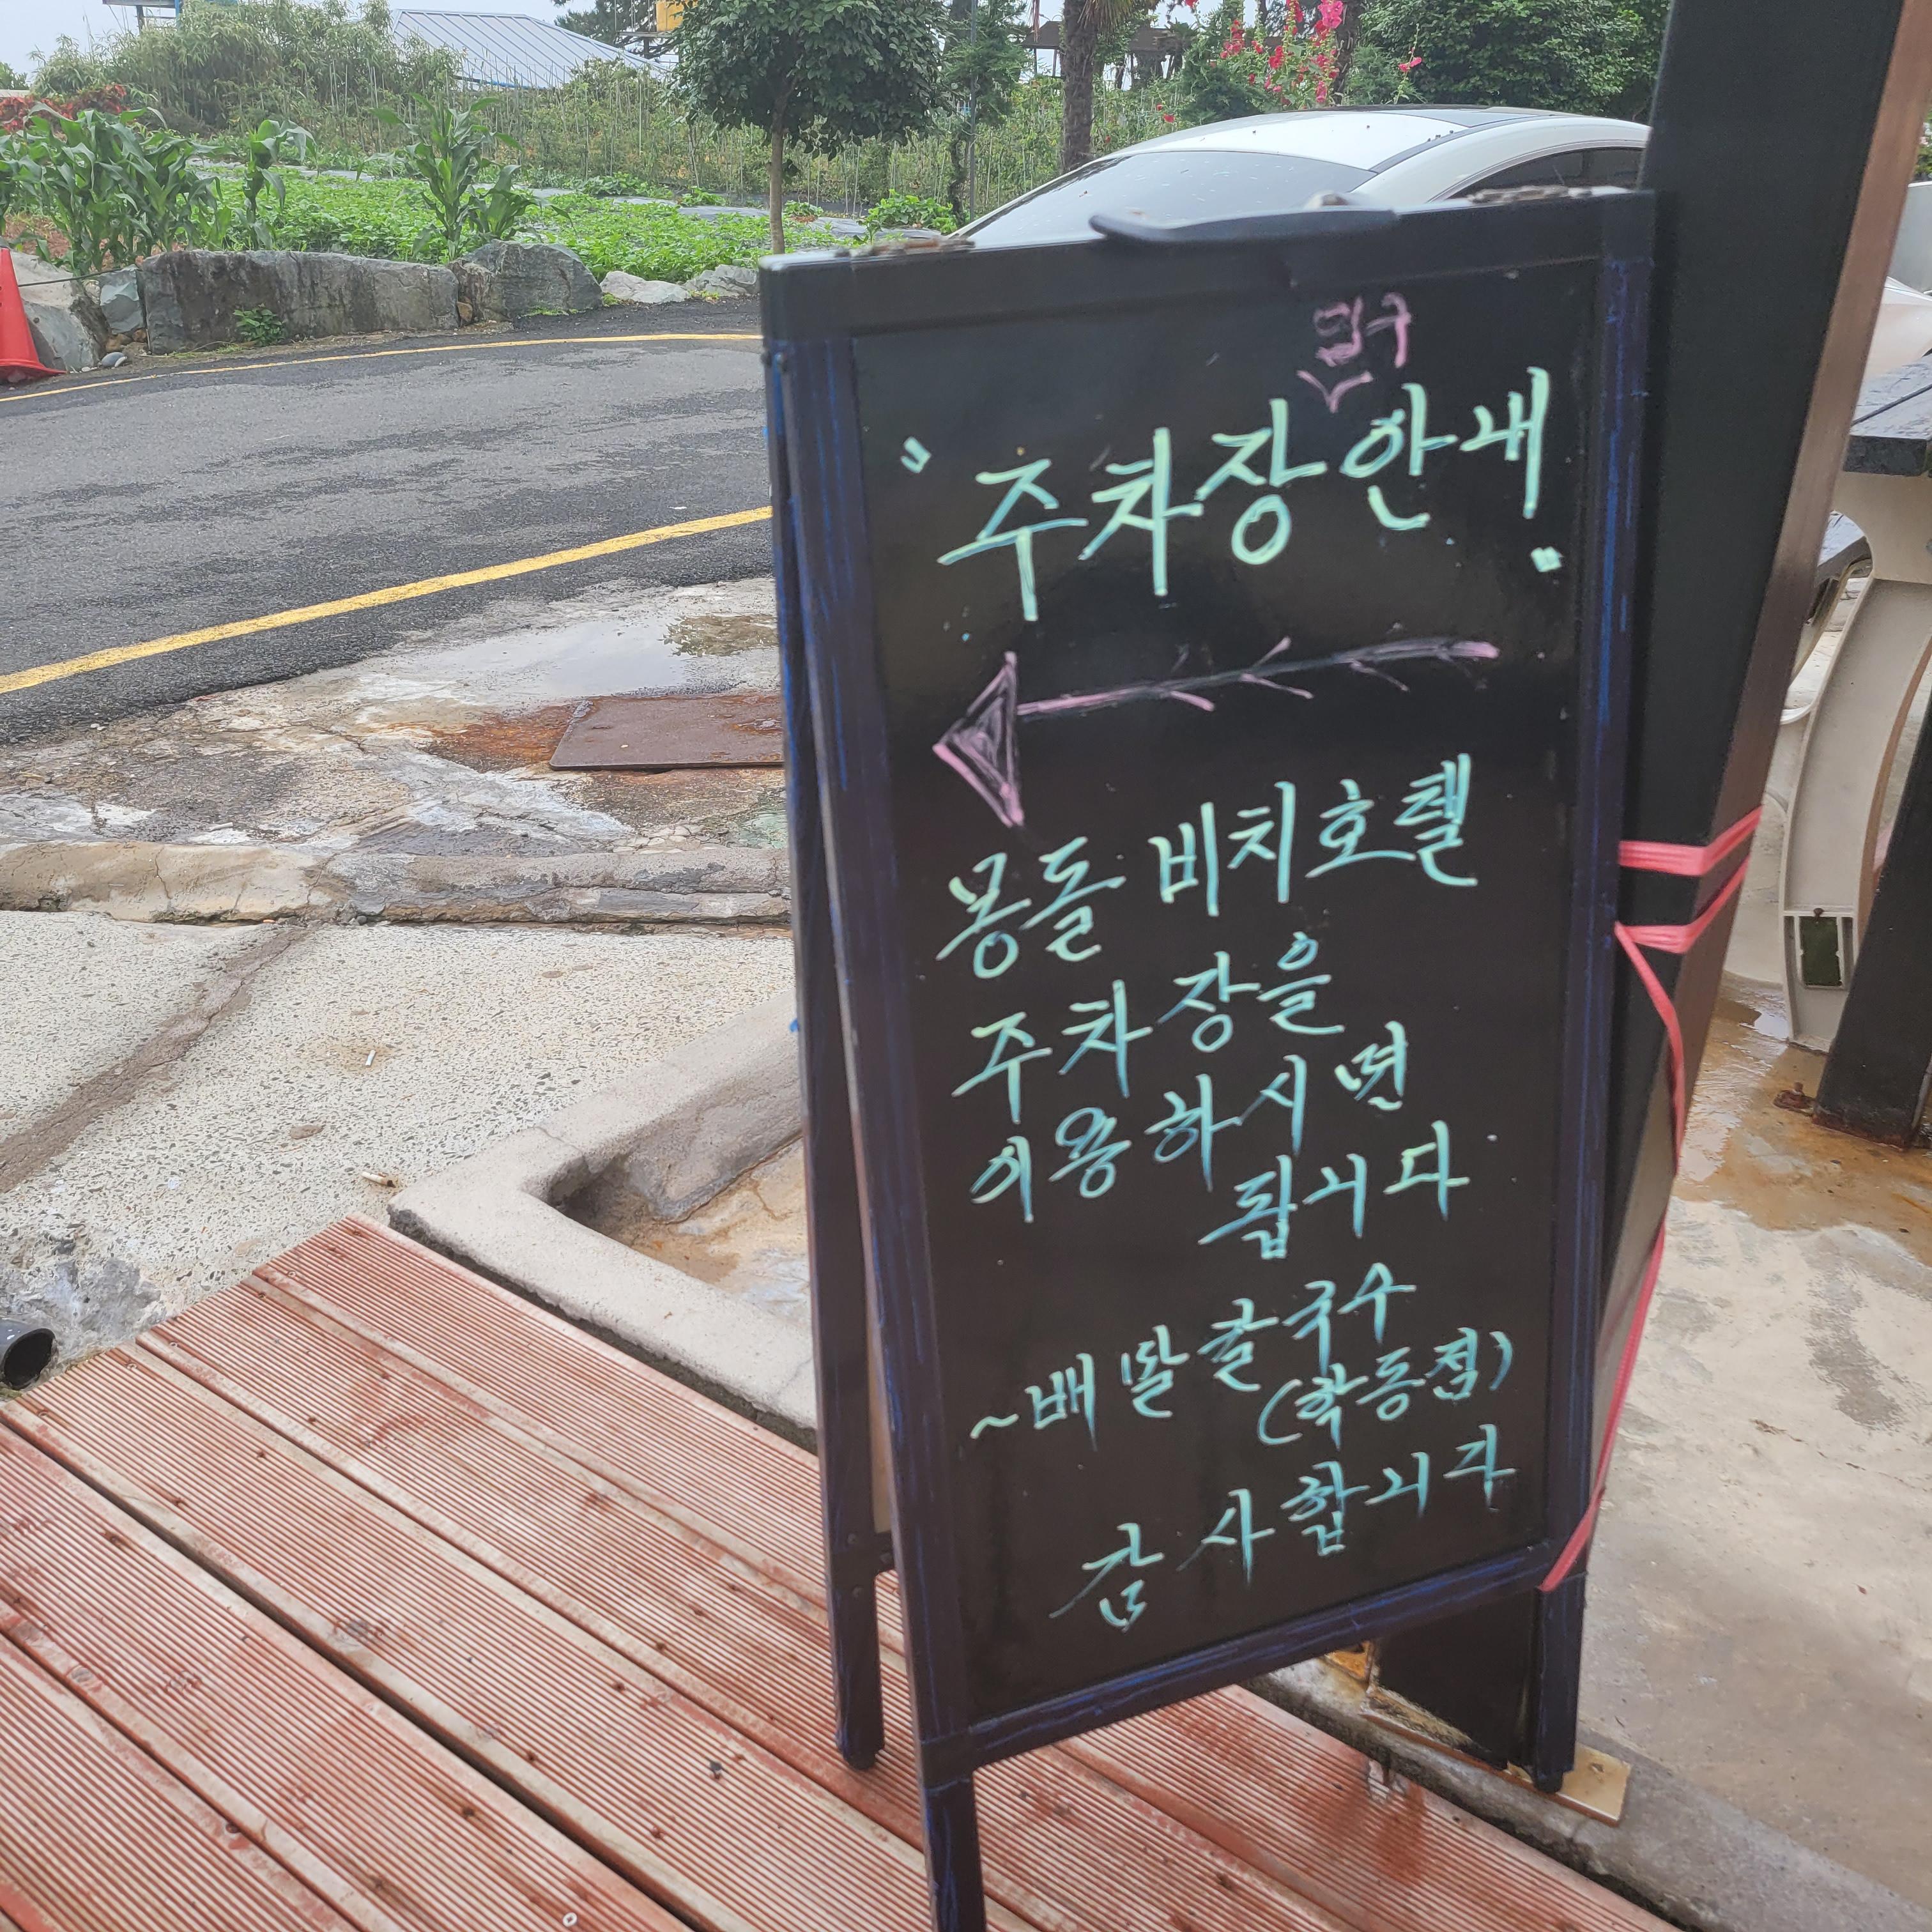 입구
"주차장 안내"
몽돌 비치호텔
주차장을
이용하시면
됩니다
~배말칼국수
(학동점)
감사합니다